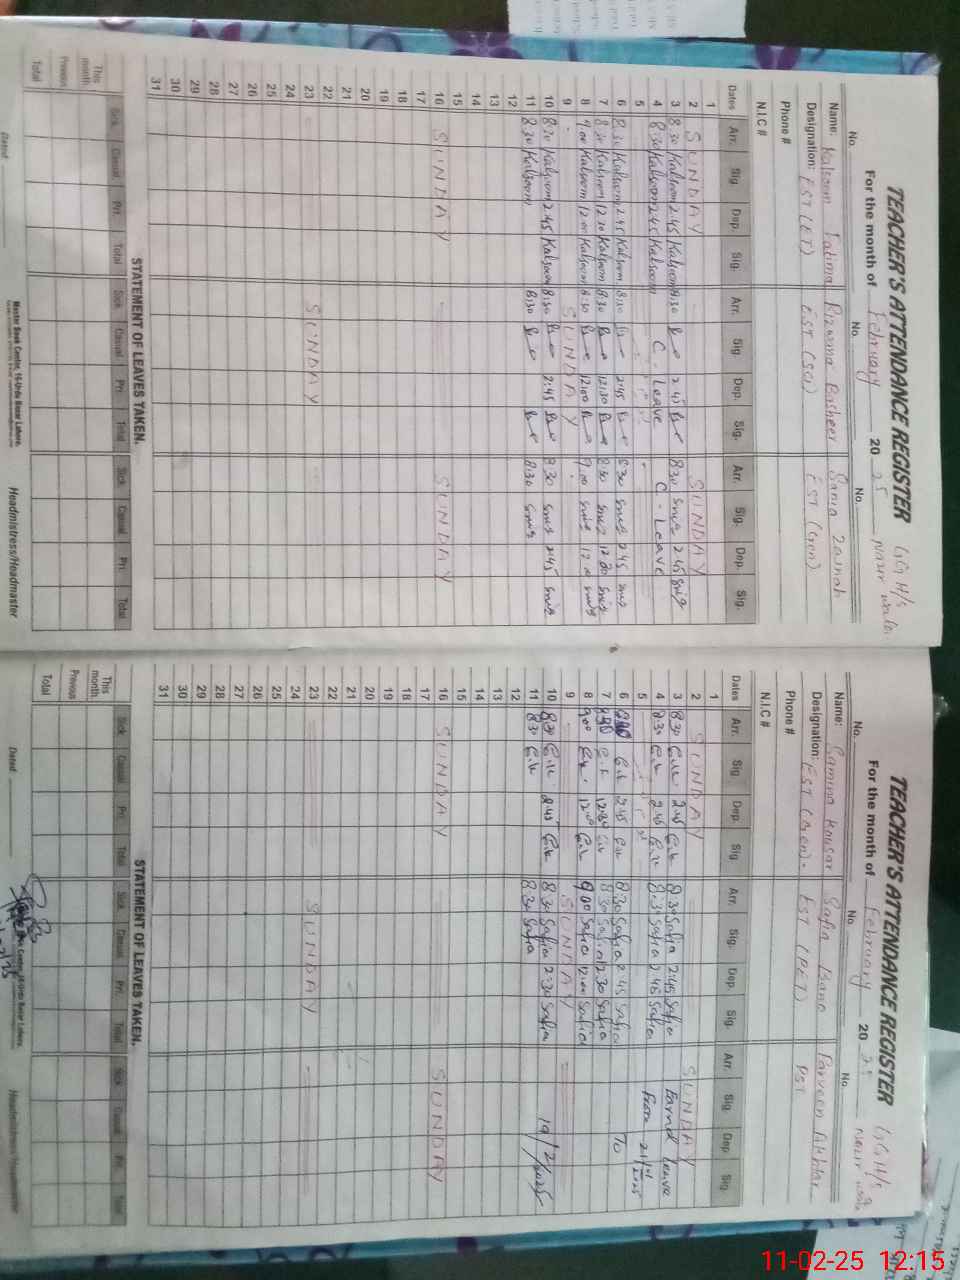 TEACHER'S ATTENDANCE REGISTER
GGH/S
For the month of February 2025
No. No. No.
Name: Kalsoom Fatima Rizwana Basheer Sania Zainab
Designation: EST (ET) EST (Sci) EST (Gen)
Phone #
N.I.C #
Dates Arr. Sig. Dep. Sig. Arr. Sig. Dep. Sig. Arr. Sig. Dep. Sig.
1
2 SUNDAY SUNDAY
3 8:30 Kalsoom 2:45 Kalsoom 8:30 2:45 8:30 2:45
4 8:30 Kalsoom 2:45 Kalsoom C. Leave C. Leave
5
6 8:30 Kalsoom 2:45 Kalsoom 8:30 2:45 8:30 2:45
7 8:30 Kalsoom 12:30 Kalsoom 8:30 12:30 8:30 12:30
8 9:00 Kalsoom 12:00 Kalsoom 8:30 12:00 9:00 12:00
9 SUNDAY
10 8:30 Kalsoom 2:45 Kalsoom 8:30 2:45 8:30 2:45
11 8:30 Kalsoom 8:30 8:30
12
13
14
15
16 SUNDAY SUNDAY
17
18
19
20
21
22
23 SUNDAY
24
25
26
27
28
29
30
31
STATEMENT OF LEAVES TAKEN.
Sick Casual Pri. Total Sick Casual Pri. Total Sick Casual Pri. Total
This month
Previous
Total
Master Book Center, 16-Urdu Bazar Lahore.
Dated: Headmistress/Headmaster
TEACHER'S ATTENDANCE REGISTER
GGH/S
For the month of February 2025
No. No. No.
Name: Samina Kousar Safia Bano Parveen Akhtar
Designation: EST (Gen). EST (PET) PST
Phone #
N.I.C #
Dates Arr. Sig. Dep. Sig. Arr. Sig. Dep. Sig. Arr. Sig. Dep. Sig.
1
2 SUNDAY SUNDAY
3 8:30 2:45 8:30 Safia 2:45 Safia Earned leave
4 8:30 2:45 8:30 Safia 2:45 Safia
5 From
6 2:45 8:30 Safia 2:45 Safia To
7 8:30 12:30 8:30 Safia 12:30 Safia
8 9:00 12:00 9:00 Safia 12:00 Safia
9 SUNDAY
10 8:30 2:45 8:30 Safia 2:30 Safia 19/2/2025
11 8:30 8:30 Safia
12
13
14
15
16 SUNDAY SUNDAY
17
18
19
20
21
22
23 SUNDAY
24
25
26
27
28
29
30
31
STATEMENT OF LEAVES TAKEN.
Sick Casual Pri. Total Sick Casual Pri. Total Sick Casual Pri. Total
This month
Previous
Total
Dated: Headmistress/Headmaster
11-02-25 12:15